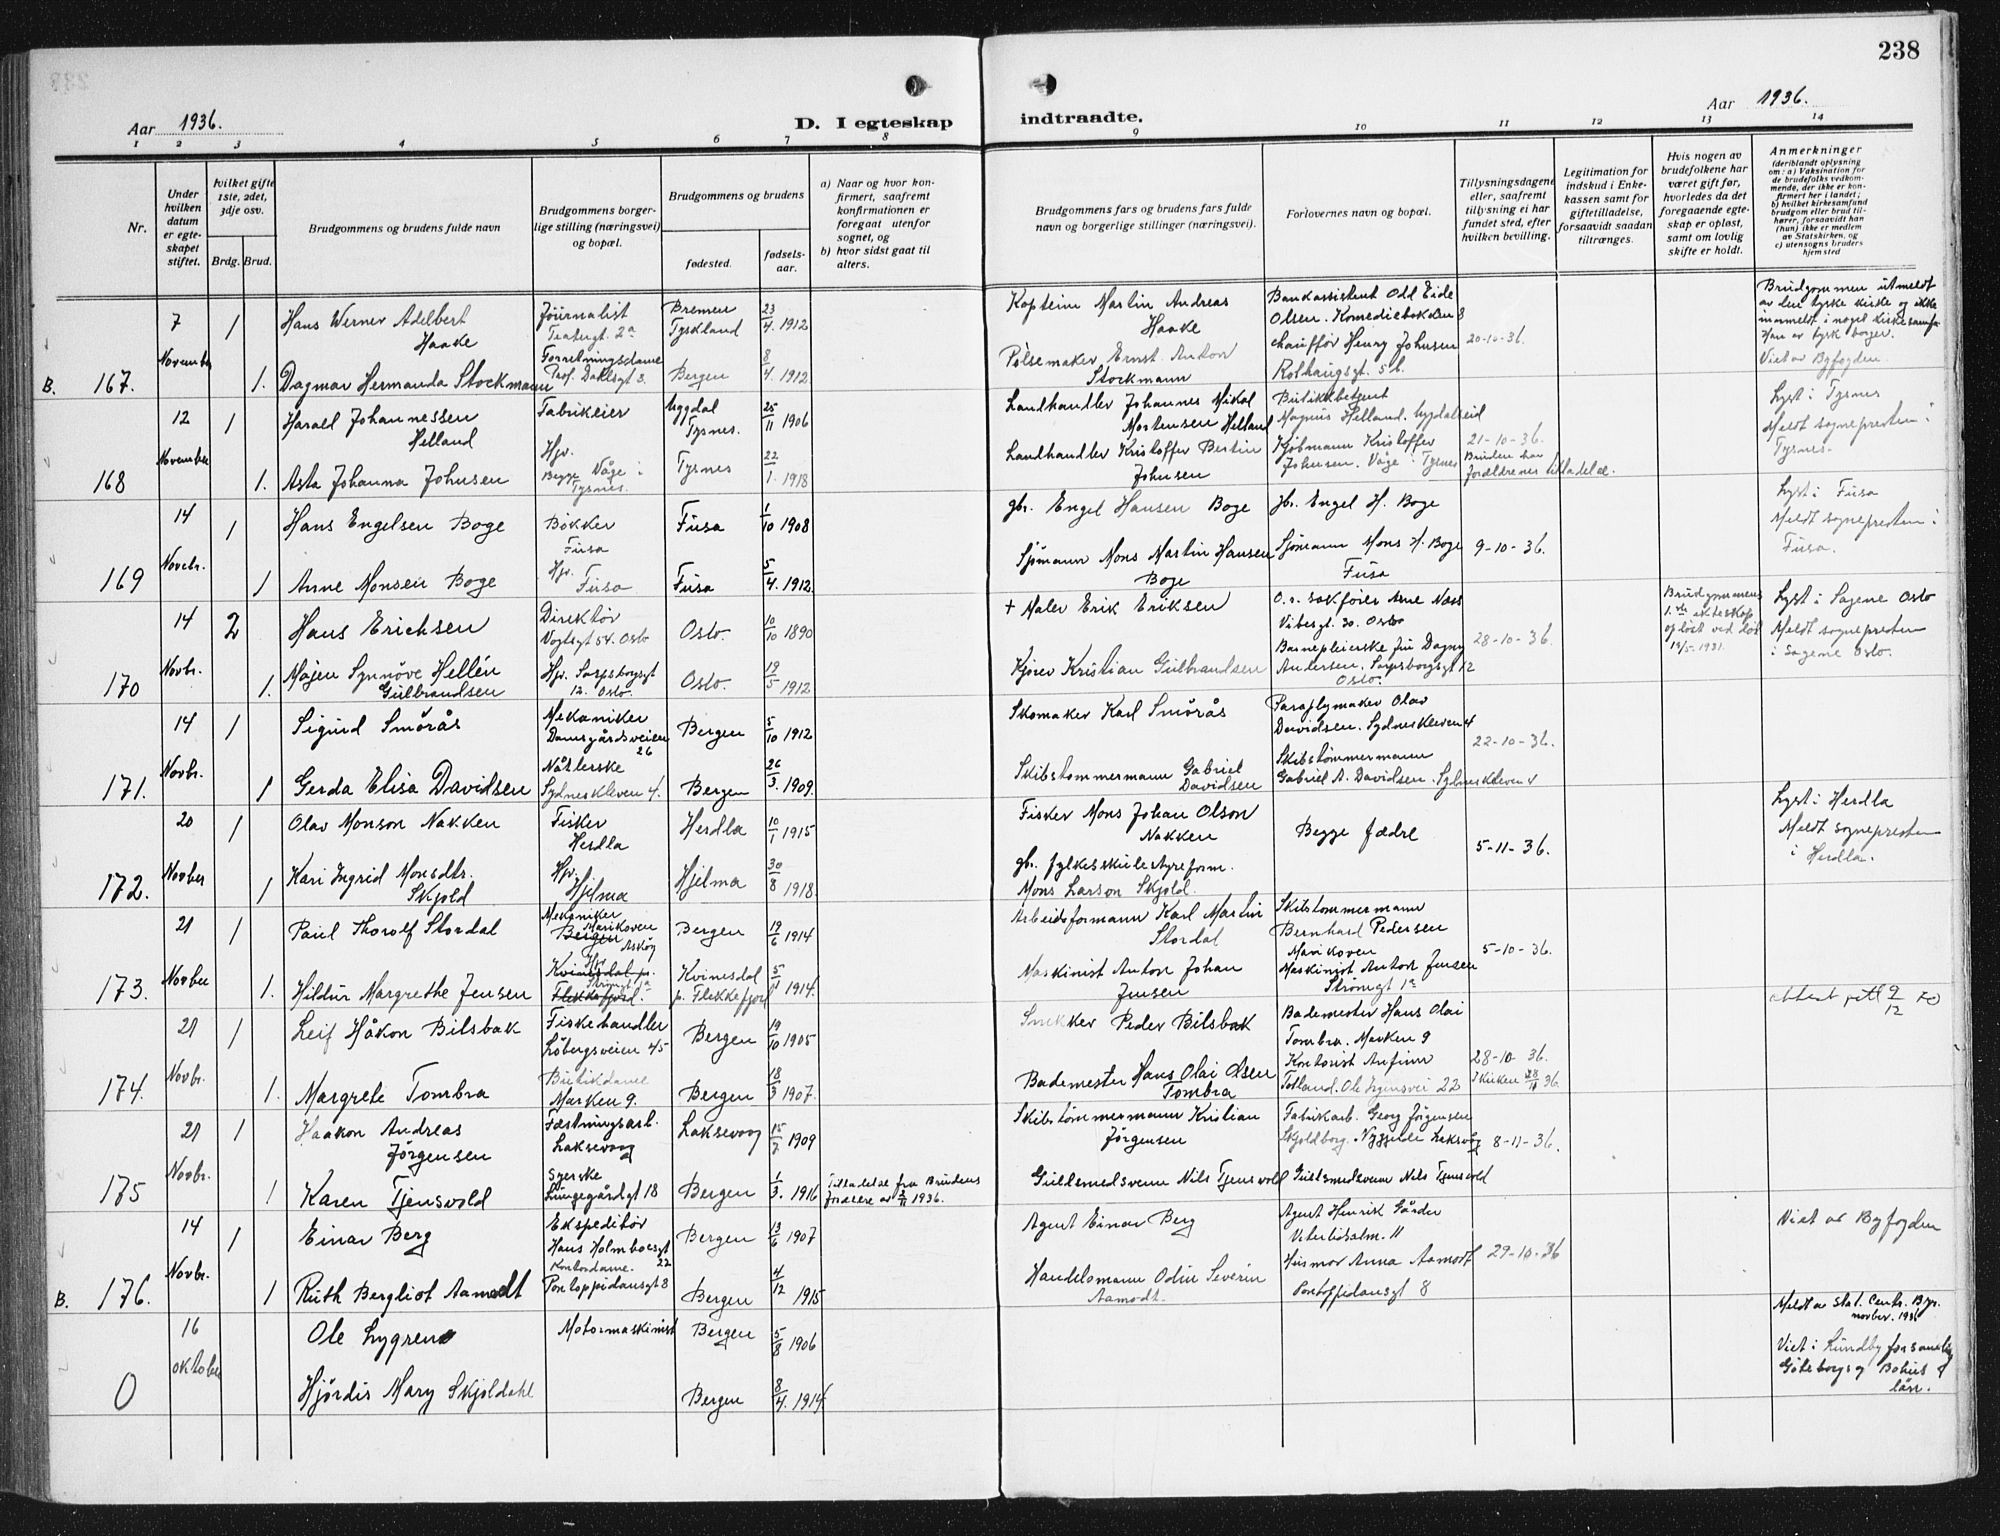 238
Aar 1936.
D. I egteskap
indtraadte.
Aar 1936.
1 2 3 4 5 6 7 8 9 10 11 12 13 14
Nr.
Under hvilken datum er egteskapet stiftet.
hvilket gifte 1ste, 2det, 3dje osv.
Brdg. Brud.
Brudgommens og brudens fulde navn
Brudgommens borgerlige stilling (næringsvei) og bopæl.
Brudgommens og brudens
fødested.
fødselsaar.
a) Naar og hvor konfirmert, saafremt konfirmationen er foregaat utenfor sognet, og
b) hvor sidst gaat til alters.
Brudgommens fars og brudens fars fulde navn og borgerlige stillinger (næringsvei).
Forlovernes navn og bopæl.
Tillysningsdagene eller, saafremt tillysning ei har fundet sted, efter hvilken bevilling.
Legitimation for indskud i Enkekassen samt for giftetilladelse, forsaavidt saadan tiltrænges.
Hvis nogen av brudefolkene har været gift før, hvorledes da det foregaaende egteskap er opløst, samt om lovlig skifte er holdt.
Anmerkninger
(deriblandt oplysning om: a) Vaksination for de brudefolks vedkommende, der ikke er konfirmert her i landet;
b) hvilket kirkesamfund brudgom eller brud tilhører, forsaavidt han (hun) ikke er medlem av Statskirken, og
c) utensogns bruders hjemsted
B. 167. 7 November 1 Hans Werner Adelbert Haake
Journalist Teatergt. 2a
Bremen Tyskland 23/4. 1912
Kaptein Martin Andreas Haake
Bankassistent Odd Eide Olsen. Komediebakken 8
20-10-36.
Brudgommen utmeldt av den tyske kirke og ikke innmeldt i noget kirkesamfu. Han er tysk borger. Viet av Byfogden.
1. Dagmar Hermanda Stockmann
Forretningsdame Prof. Dahlsgt 3.
Bergen 8/4. 1912
Pølsemaker Ernst Anton Stockmann
chauffør Henry Johnsen
168 12 November 1 Harald Johannessen Helland
Fabrikeier
Uggdal Tysnes. 25/11 1906
Landhandler Johannes Mikal Mortensen Helland
Magnus Helland.
21-10-36.
Lyst i Tysnes Meldt sognepresten i Tysnes.
1. Asta Johanna Johnsen
Hjv. Begge Våge i Tysnes.
Tysnes 22/1. 1918
Landhandler Kristoffer Bertin Johnsen
Kjøbmann Kristoffer Johnsen. Våge i Tysnes
Bruden har foreldrenes tilladelse.
169 14 Novbr. 1 Hans Engelsen Boge
Bøkker Fusa
Fusa 1/10 1908
gbr. Engel Hansen Boge
gbr. Engel H. Boge
9-10-36.
Lyst i Fusa Meldt sognepresten i Fusa.
1 Anne Monsen Boge
Hjv. Fusa
Fusa 5/4. 1912
Sjømann Mons Martin Hansen Boge
Sjømann Mons H. Boge Fusa
170 14 Novbr. 2 Hans Erichsen
Direktør Vogtsgt 54. Oslo
Oslo. 10/10 1890
+ Maler Erik Eriksen
O.r. sakfører Arne Næss Vibesgt. 30. Oslo
28-10-36.
Brudgommens 1.ste ekteskap opløst ved 19/5-1931.
Lyst i Sagene Oslo Meldt sognepresten i Sagene Oslo.
1. Majen Synnöve Hellén Gulbrandsen
Hjv. Sarpsborggt 12. Oslo.
Oslo. 19/5 1912
Kjører Kristian Gulbrandsen
Barnepleierske fru Dagny Andersen. Sarpsborggt 12 Oslo.
171. 14 Novbr. 1 Sigurd Smörås
Mekaniker Damsgårdsveien 26
Bergen 5/10 1912
Skomaker Karl Smörås
Paraplymaker Olav Davidsen. Sydneskleven 4
22-10-36.
1 Gerda Elisa Davidsen
Nåtlerske Sydneskleven 4.
Bergen 26/3. 1909.
Skibstømmermann Gabriel Davidsen
Skibstømmermann Gabriel A. Davidsen. Sydneskleven 4
172. 20 Novber 1 Olav Monson Nakken
Fisker Herdla
Herdla 10/1 1915
Fisker Mons Johan Olson Nakken
Begge fædre
5-11-36.
Lyst i Herdla Meldt sognepresten i Herdla.
1 Kari Ingrid Monsdtr. Skjold
Hjv. Hjelma
Hjelma 30/8 1918.
gbr. fylkesskulestyreform. Mons Larson Skjold.
173. 21 Novber 1 Paul Thorolf Stordal
Mekaniker Marikoven Bergen Askøy
Bergen 19/6 1914
Arbeidsformann Karl Martin Stordal
Skibstømmermann Bernhard Pedersen Marikoven
5-10-36.
1. Hildur Margrethe Jensen
Hjv. Kvinesdal pr. Strømgt 1a Flekkefjord.
Kvinesdal p. Flekkefjord 5/11 1914.
Maskinist Anton Johan Jensen
Maskinist Anton Jensen Strømgt 1a
174. 21 Novbr. 1 Leif Håkon Bilsbak
Fiskehandler Løbergsveien 45
Bergen 19/10 1905
Snekker Peder Bilsbak
Bademester Hans Olai Tombra. Marken 9
28-10-36.
9/12
1. Margrete Tombra
Butikdame Marken 9.
Bergen 18/3 1907.
Bademester Hans Olai Olsen Tombra
Kontorist Arfinn Totland. 22
175 21 Novbr. 1 Haakon Andreas Jörgensen
Fæstningsarb. Laksevaag
Laksevaag 15/7 1909
Skibstømmermann Kristian Jørgensen
Fabrikarb. Georg Jørgensen
8-11-36.
1 Karen Tjensvold
Syerske Lungegårdsgt 18
Bergen 1/3. 1916
Tilladelse fra Brudens foreldre av 2/11 1936.
Gullsmedsvenn Nils Tjensvold
Gullsmedsvenn Nils Tjensvold
B. 176. 14 Novbr. 1 Einar Berg
Ekspeditør Hans Holmboesgt 22
Bergen 13/6 1907
Agent Einar Berg
Agent Henrik Gårder 11
29-10-36
Viet av Byfogden
1 Ruth Bergliot Aamodt
Kontordame. Pontoppidansgt 8
Bergen 4/12 1915
Handelsmann Odin Severin Aamodt.
Husmor Anna Aamodt Pontoppidansgt 8
0 16 oktober Ole Lygren
Motormaskinist
Bergen 5/8 1906
Meldt av Stat. Centr. Byr. novber. 1936
Viet i Lundby forsamling Göteborgs og Bohus län.
Hjørdis Mary Skjoldahl
Bergen 8/4. 1914